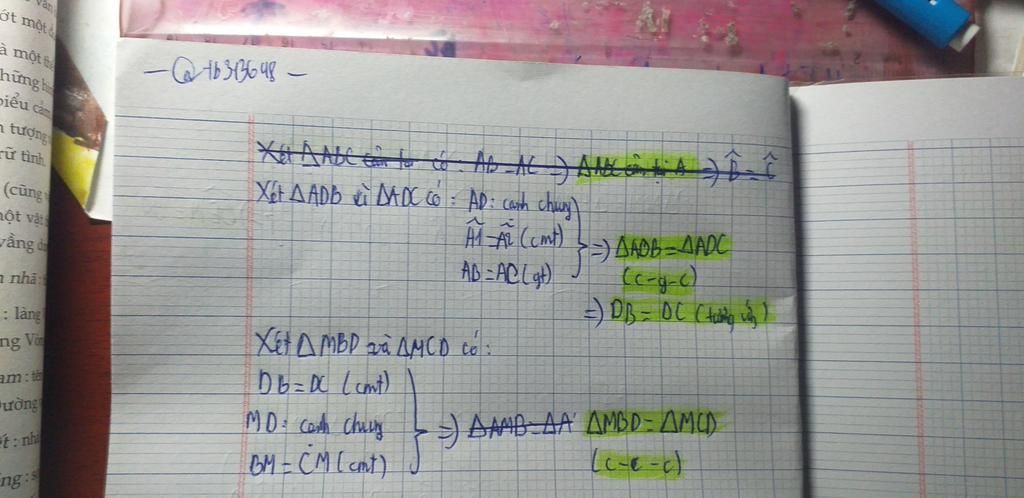 ớt một
à một
những
biểu cảm
tượng
rữ tình.
(cũng
một vật
vầng
nhã:
: làng
ng
am: tên
Dường
t: nhà
ng:
Xét ΔABC cân tại có: AB = AC => ΔABC cân tại A => B̂ = Ĉ
Xét ΔADB và ΔADC có: AD: cạnh chung
Â1 = Â2 (cmt)
AB = AC (gt)
=> ΔADB = ΔADC
(c-g-c)
=> DB = DC (tương ứng)
Xét ΔMBD và ΔMCD có:
DB = DC (cmt)
MD: cạnh chung
BM = CM (cmt)
=> ΔAMB = ΔA ΔMBD = ΔMCD
(c-c-c)